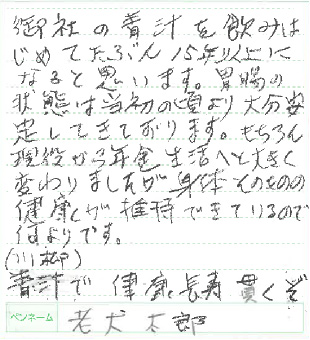 御社の青汁を飲みは
じめてたぶん15年以上に
なると思います。胃腸の
状態は当初の頃より大分安
定してきております。もちろん
現役から年金生活へと大きく
変わりましたが身体そのものの
健康が維持できているので
何よりです。
(川柳)
青汁で 健康長寿 貫くぞ
ペンネーム 老犬太郎